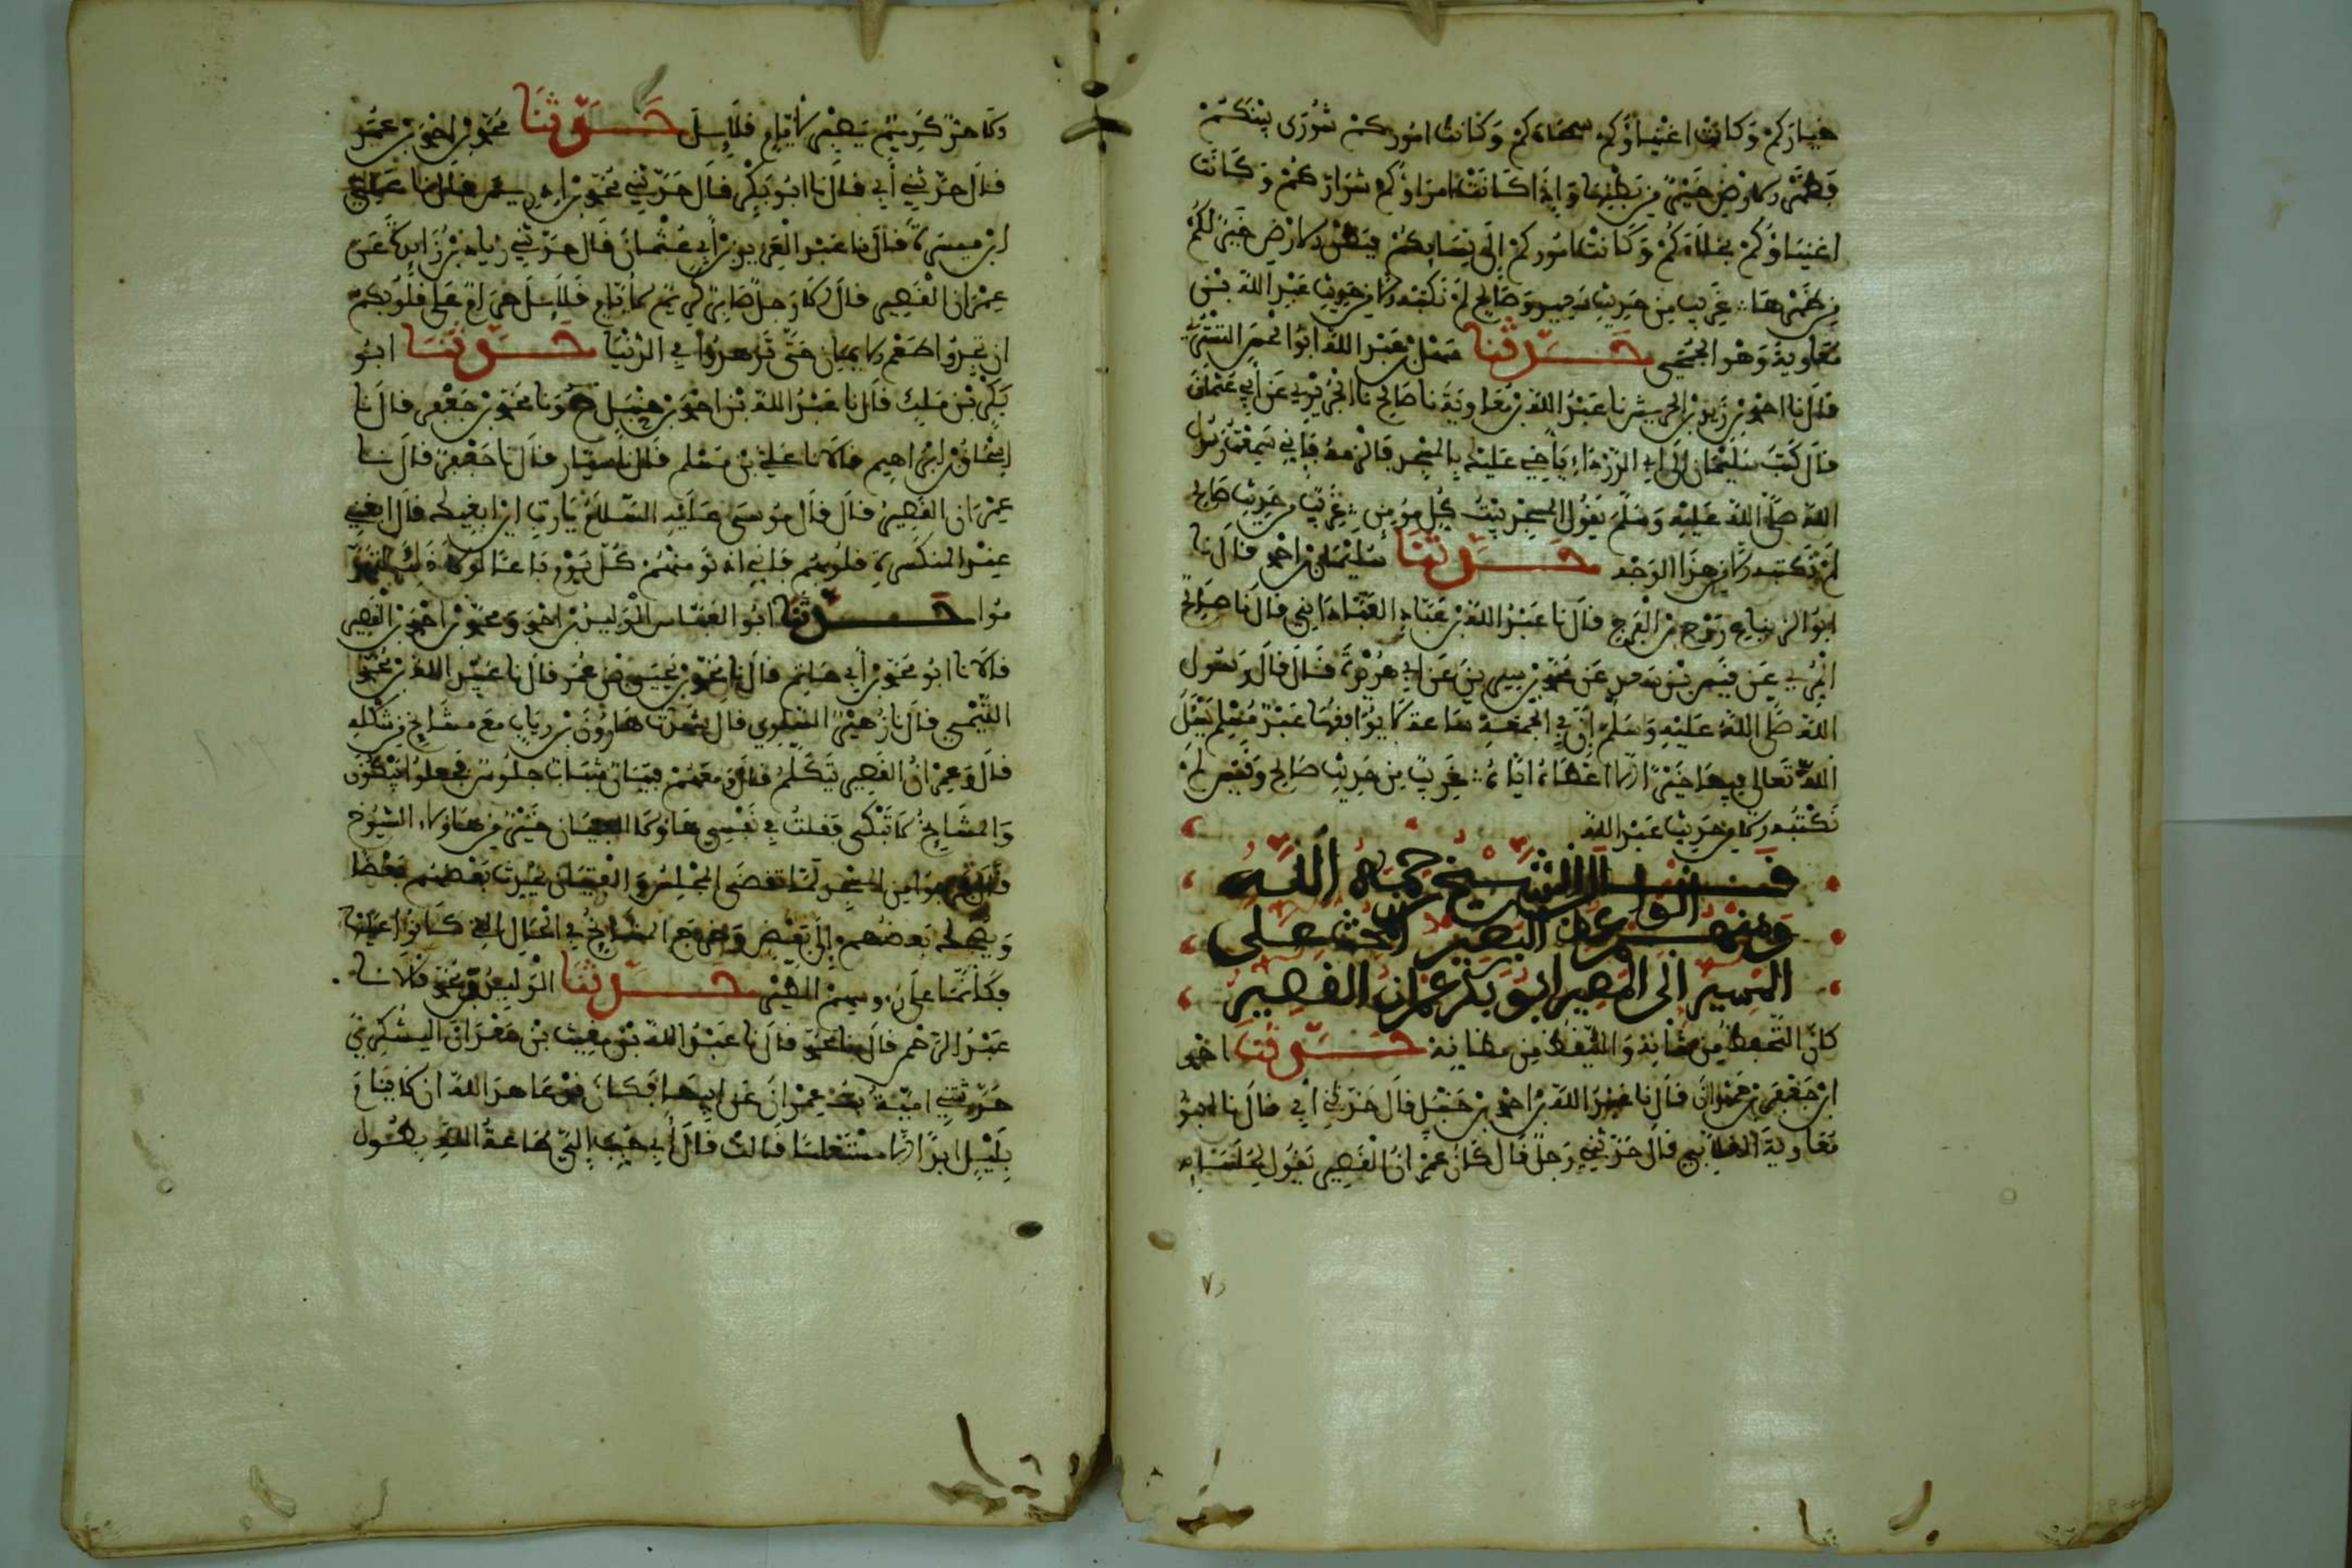 خياركم وكانت اغنياؤكم سمحاءكم وكانت اموركم شورى بينكم
فظهر الارض خير من بطنها واذا كانت امراؤكم شراركم وكانت
اغنياؤكم بخلاءكم وكانت اموركم الى نسايكم فبطن الارض خير لكم
من ظهرها غريب من حديث وصالح لم نكتبه الا من حديث عبد الله بن
معاوية وهو الجمحي حدثنا سهل بن عبد الله ابو الحسن التستري
قال نا احمد بن زيد بن الحريش نا عبد الله بن معاوية نا صالح نا الجريري عن ابي عثمان
قال كتب سلمان الى ابي الدرداء يا اخي عليك بالمسجد فالزمه فاني سمعت رسول
الله صلى الله عليه وسلم يقول المسجد بيت كل مومن غريب من حديث صالح
لم نكتبه الا من هذا الوجه حدثنا سليمان بن احمد قال نا
ابو الزنباع روح بن الفرج قال نا عبد الله بن عباد العباداني قال نا صالح
المري عن عن محمد بن سيرين عن ابي هريرة قال قال رسول
الله صلى الله عليه وسلم ان في الجمعة ساعة لا يوافقها عبد مسلم يسل
الله تعالى فيها خيرا الا اعطاه اياه غريب من حديث صالح لم
نكتبه الا من حديث عبد الله
قال الشيخ رحمه الله
ومنهم البصير الحث على
المسير الى المصير ابو بكر عمران القصير
كان التحفظ من والتيقظ من حدثنا احمد
ابن جعفر بن حمدان قال نا عبد الله بن احمد بن حنبل قال حدثني ابي قال نا ابو
معاوية الغلابي قال حدثني رجل قال كان عمران القصير يقول لجلسايه
الا حر كريم يصبر اياما قلايل حدثنا محمد بن احمد بن عمر
قال حدثني ابي قال نا ابو بكر قال حدثني محمد بن ادريس قال نا
ابن ميسرة قال نا عبد العزيز بن ابي عثمان قال حدثني عن
عمران القصير قال الا رجل صابر كريم لايام قلايل حرام على قلوبكم
ان تجدوا طعم الايمان حتى تزهدوا في الدنيا حدثنا ابو
بكر بن ملك قال نا عبد الله بن احمد بن حنبل ح ونا محمد بن جعفر قال نا
اسحاق بن ابراهيم قالا نا علي بن مسلم قال نا سيار قال نا جعفر قال نا
عمران القصير قال قال موسى عليه السلام يا رب اين ابغيك قال ابغني
عند المنكسرة قلوبهم فاني ادنو منهم كل يوم باعا لولا ذلك
حدثنا ابو العباس الوليد بن احمد ومحمد بن احمد بن النضر
قالا نا ابو محمد بن ابي حاتم قال نا محمد بن يحيى بن عمر قال نا عبيد الله بن محمد
التيمي قال نا زهير السلولي قال شهدت هارون بن رياب مع مشايخ من شكله
قال وعمران القصير يتكلم قال ومعهم فتيان شباب جلوس فجعلوا يبكون
والمشايخ لا تبكي فقلت في نفسي هاولاء الفتيان خير من هاولاء الشيوخ
قال من المسجد لما تقضى المجلس والفتيان يحدث بعضهم بعضا
ويضحك بعضهم الى بعض وخرج المشايخ في الحال التي كانوا عليها
فكانما على روسهم الطير حدثنا الوليد ومحمد قالا نا
عبد الرحمن قال نا محمد قال نا عبد الله بن مغيث بن اليشكري
حدثتني امية بنت عمران عن ابيها وكان قد عاهد الله ان لا ينام
بليل ابدا الا مستغلبا قالت قال ابي حبب الي طاعة الله بطول